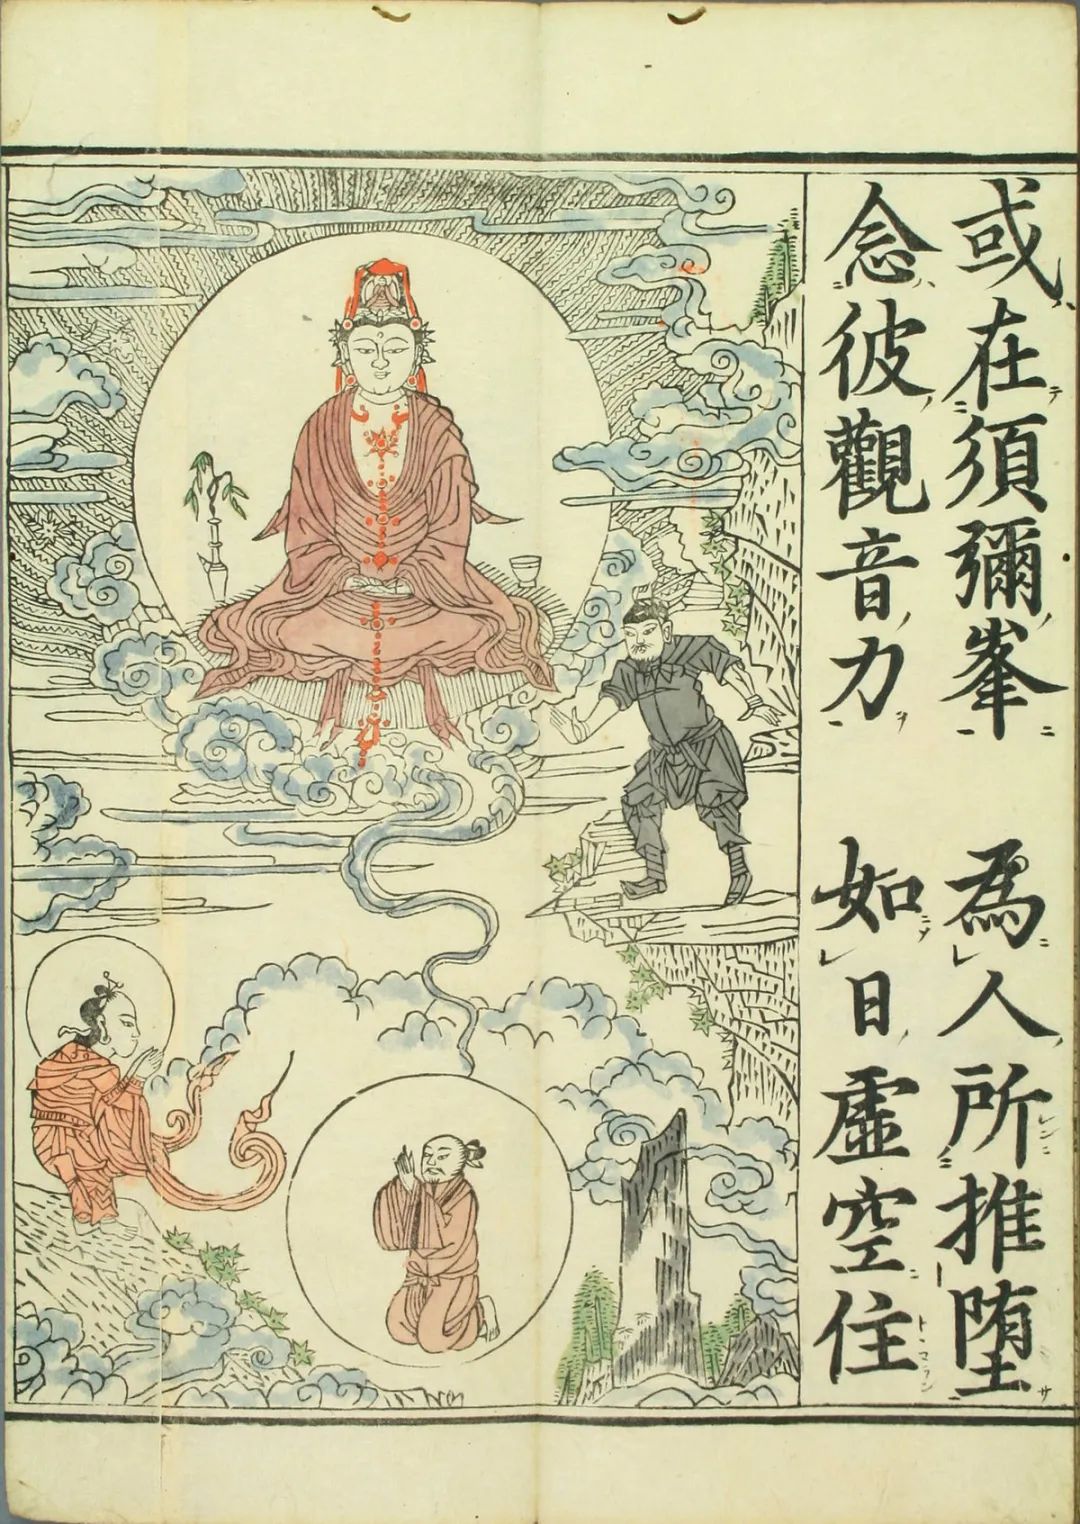 或在須彌峯　為人所推堕
念彼觀音力　如日虛空住